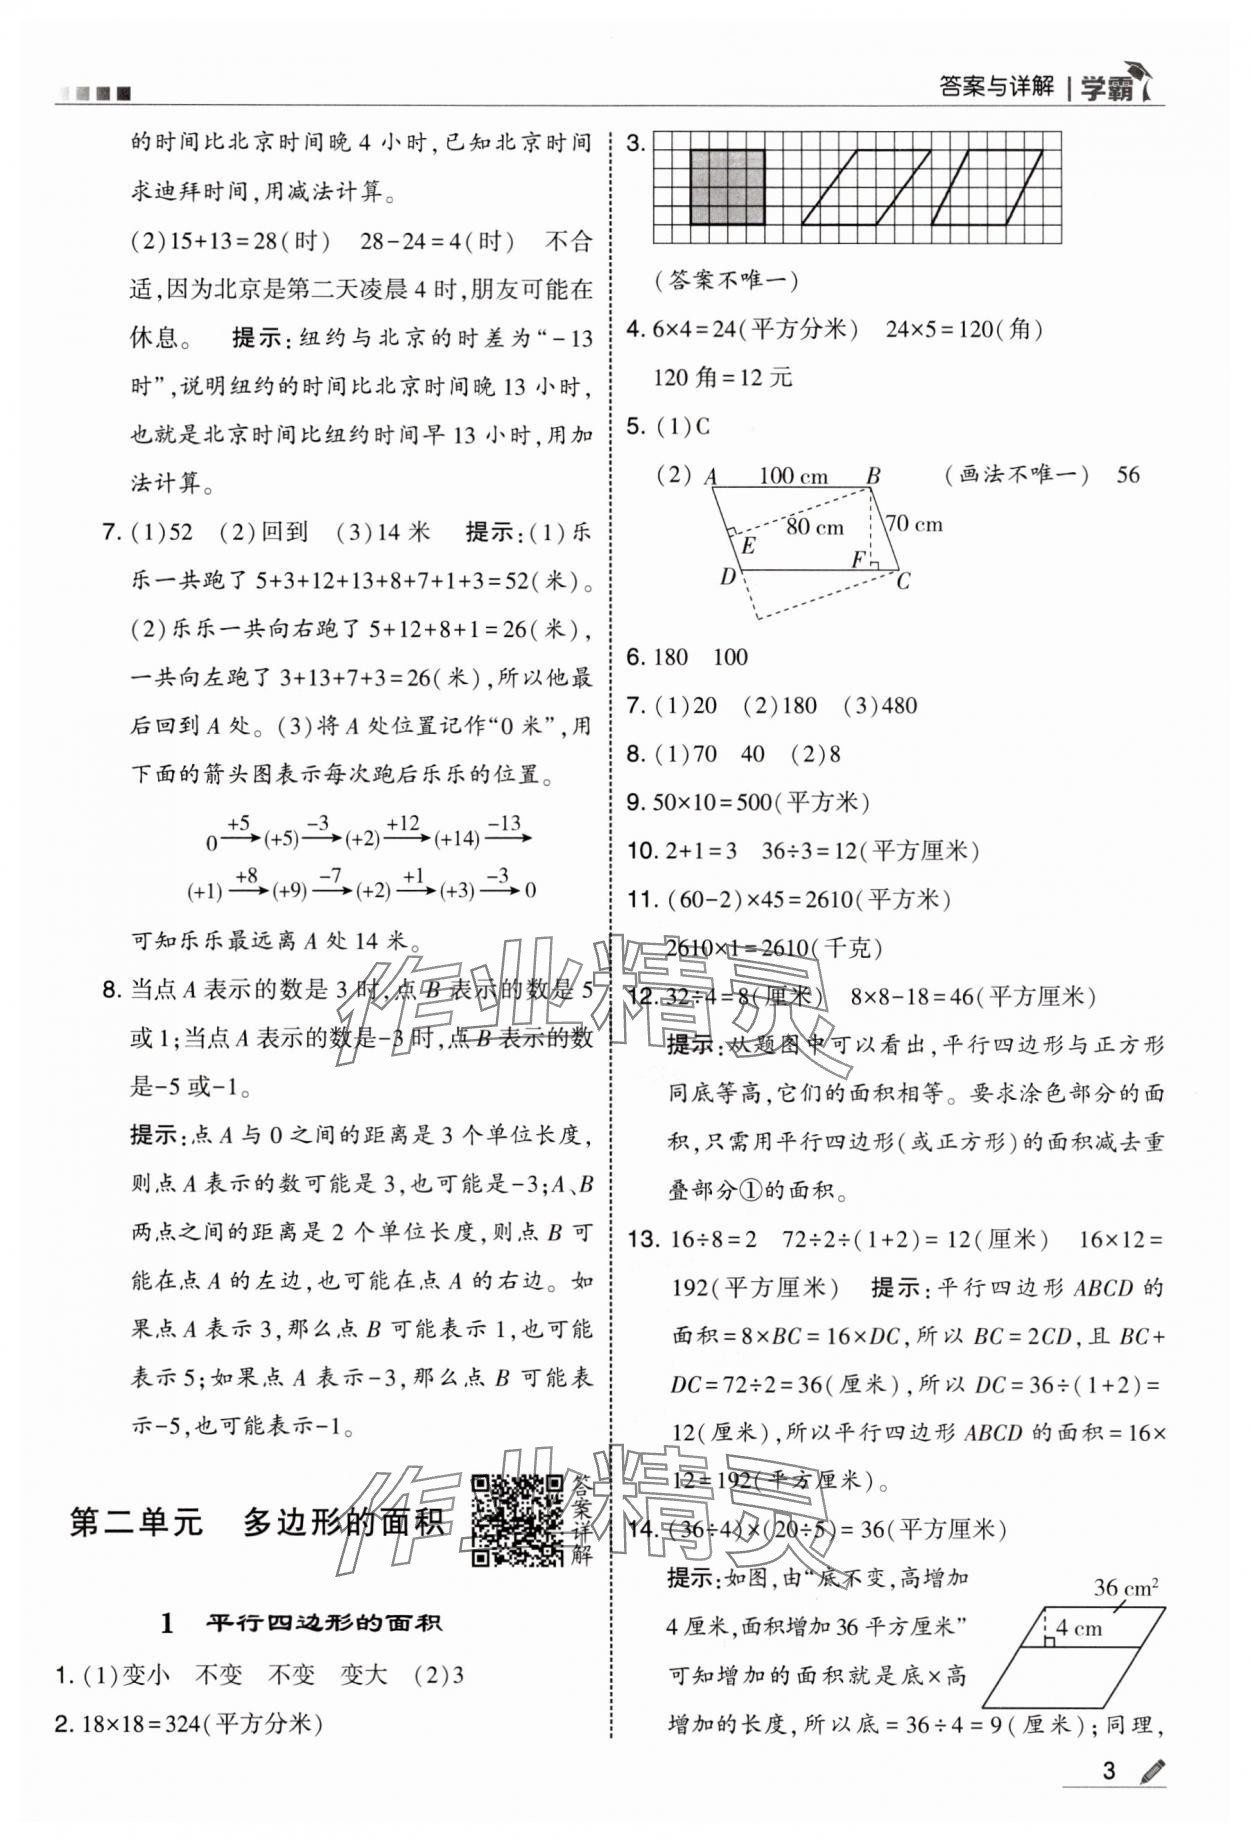 答案与详解 学霸
的时间比北京时间晚 4 小时,已知北京时间
求迪拜时间,用减法计算。
(2)15+13=28(时) 28-24=4(时) 不合
适,因为北京是第二天凌晨 4 时,朋友可能在
休息。 提示:纽约与北京的时差为“-13
时”,说明纽约的时间比北京时间晚 13 小时,
也就是北京时间比纽约时间早 13 小时,用加
法计算。
7. (1)52 (2)回到 (3)14 米 提示:(1)乐
乐一共跑了 5+3+12+13+8+7+1+3=52(米)。
(2)乐乐一共向右跑了 5+12+8+1=26(米),
一共向左跑了 3+13+7+3=26(米),所以他最
后回到 A 处。(3)将 A 处位置记作“0 米”,用
下面的箭头图表示每次跑后乐乐的位置。
0 +5 (+5) -3 (+2) +12 (+14) -13
(+1) +8 (+9) -7 (+2) +1 (+3) -3 0
可知乐乐最远离 A 处 14 米。
8. 当点 A 表示的数是 3 时,点 B 表示的数是 5
或 1;当点 A 表示的数是-3 时,点 B 表示的数
是-5 或-1。
提示:点 A 与 0 之间的距离是 3 个单位长度,
则点 A 表示的数可能是 3,也可能是-3;A、B
两点之间的距离是 2 个单位长度,则点 B 可
能在点 A 的左边,也可能在点 A 的右边。如
果点 A 表示 3,那么点 B 可能表示 1,也可能
表示 5;如果点 A 表示-3,那么点 B 可能表
示-5,也可能表示-1。
第二单元 多边形的面积
答案详解
1 平行四边形的面积
1. (1)变小 不变 不变 变大 (2)3
2. 18×18=324(平方分米)
3.
(答案不唯一)
4. 6×4=24(平方分米) 24×5=120(角)
120 角=12 元
5. (1)C
(2) A 100 cm B (画法不唯一) 56
80 cm 70 cm
E
F
D C
6. 180 100
7. (1)20 (2)180 (3)480
8. (1)70 40 (2)8
9. 50×10=500(平方米)
10. 2+1=3 36÷3=12(平方厘米)
11. (60-2)×45=2610(平方米)
2610×1=2610(千克)
12. 32÷4=8(厘米) 8×8-18=46(平方厘米)
提示:从题图中可以看出,平行四边形与正方形
同底等高,它们的面积相等。要求涂色部分的面
积,只需用平行四边形(或正方形)的面积减去重
叠部分①的面积。
13. 16÷8=2 72÷2÷(1+2)=12(厘米) 16×12=
192(平方厘米) 提示:平行四边形 ABCD 的
面积=8×BC=16×DC,所以 BC=2CD,且 BC+
DC=72÷2=36(厘米),所以 DC=36÷(1+2)=
12(厘米),所以平行四边形 ABCD 的面积=16×
12=192(平方厘米)。
14. (36÷4)×(20÷5)=36(平方厘米)
提示:如图,由“底不变,高增加
4 厘米,面积增加 36 平方厘米”
可知增加的面积就是底×高
增加的长度,所以底=36÷4=9(厘米);同理,
36 cm²
4 cm
作业精灵
作业精灵
3